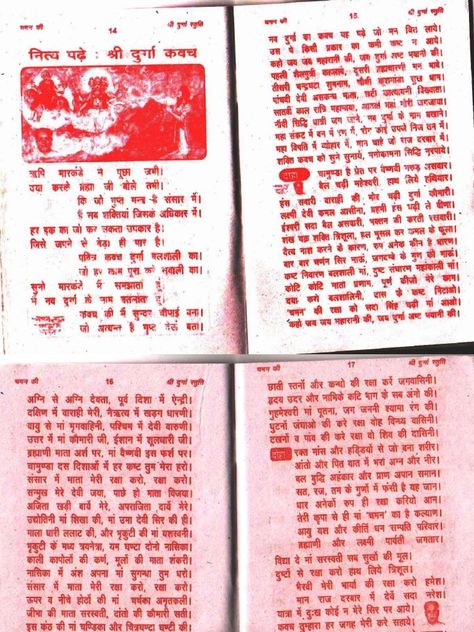 चमन की
14
श्री दुर्गा स्तुति
नित्य पढ़े : श्री दुर्गा कवच
ऋषि मारकंडे ने पूछा जभी।
दया करके ब्रह्मा जी बोले तभी।
कि जो गुप्त मन्त्र है संसार में।
हैं सब शक्तियां जिसके अधिकार में।
हर इक का जो कर सकता उपकार है।
जिसे जपने से बेड़ा ही पार है।
पवित्र कवच दुर्गा बलशाली का।
जो हर काम पूरा करे सवाली का।
सुनो मारकंडे मैं समझाता
मैं नव दुर्गा के नाम बतलाता
कवच की मैं सुन्दर चौपाई बना।
जो अत्यन्त है गुप्त देऊं बता।
चमन की
15
श्री दुर्गा स्तुति
नव दुर्गा का कवच यह पढ़े जो मन चित लाये।
उस पे किसी प्रकार का कभी कष्ट न आये।
कहो जय जय महारानी की, जय दुर्गा अष्ट भवानी की।
पहली शैलपुत्री कहलावे, दूसरी ब्रह्मचारणी मन भावे।
तीसरी चन्द्रघंटा शुभनाम, चौथी कूशमांडा सुख धाम।
पांचवी देवी असकन्ध माता, छटी कात्यायनी विख्याता।
सातवीं काल रात्रि महामाया, आठवीं महां गौरी जगजाया।
नौवीं सिद्धि धात्री जग जाने, नव दुर्गा के नाम बखाने।
महा संकट में वन में रण में, रोग कोई उपजे निज तन में।
महा विपति में व्योहार में, मान चाहे जो राज दरबार में।
शक्ति कवच को सुने सुनाये, मनोकामना सिद्धि नरपाये।
दोहा:
चामुण्डा है प्रेत पर वैष्णवी गरुड़ असवार।
बैल चढ़ी महेश्वरी, हाथ लिये हथियार।
हंस सवारी वाराही की मोर चढ़ी दुर्गा कौमारी।
लक्ष्मी देवी कमल आसीना, ब्रह्मी हंस चढ़ी ले वीणा।
ईश्वरी सदा बैल असवारी, भक्तन की करती रखवारी।
शंख चक्र शक्ति त्रिशूला, हल मूसल कर कमल के फूला।
दैत्य नाश करने के कारण, रुप अनेक कीन है धारण।
बार बार चरणन सिर नाऊं, जगदम्बे के गुण को गाऊं।
कष्ट निवारण बलशाली मां, दुष्ट संघारण महाकाली मां।
कोटि कोटि माता प्रणाम, पूर्ण कीजो मेरे काम।
दया करो बलशालिनी, दास के कष्ट मिटाओ।
'चमन' की रक्षा को सदा सिंह चढ़ी मां आओ।
कहो जय जय महारानी की, जय दुर्गा अष्ट भवानी की।
चमन की
16
श्री दुर्गा स्तुति
अग्नि से अग्नि देवता, पूर्व दिशा में ऐन्द्री।
दक्षिण में वाराही मेरी, नैऋत्य में खड़ग धारणी।
वायु से मां मृगवाहिनी, पश्चिम में देवी वारुणी।
उत्तर में मां कौमारी जी, ईशान में शूलधारी जी।
ब्रह्माणी माता अर्श पर, मां वैष्णवी इस फर्श पर।
चामुण्डा दस दिशाओं में हर कष्ट तुम मेरा हरो।
संसार में माता मेरी रक्षा करो, रक्षा करो।
सन्मुख मेरे देवी जया, पाछे हो माता विजया।
अजिता खड़ी बायें मेरे, अपराजिता दायें मेरे।
उद्योतिनी मां सिखा की, मां उमा देवी सिर की ही।
माला धारी ललाट की, और भृकुटी की मां यशस्वनी।
भृकुटी के मध्य त्रयनेत्रा, यम घण्टा दोनों नासिका।
काली कापोलों की कर्ण, मूलों की माता शंकरी।
नासिका में अंश अपना मां सुगन्धा तुम धरो।
संसार में माता मेरी रक्षा करो, रक्षा करो।
ऊपर व नीचे होठों की मां चर्चका अमृतकली।
जीभा की माता सरस्वती, दांतो की कौमारी सती।
इस कंठ की मां चण्डिका और चित्रघण्टा घण्टी की।
चमन की
17
श्री दुर्गा स्तुति
छाती स्तनों और कन्धो की रक्षा करें जगवासिनी।
हृदय उदर और नाभिके कटि भाग के सब अंगो की।
गुहमेश्वरी मां पूतना, जग जननी श्यामा रंग की।
घुटनों जंघाओ की करे रक्षा वोह विन्ध्य वासिनी।
टखनों व पांव की करे रक्षा वो शिव की दासिनी।
दोहा:
रक्त मांस और हड्डियों से जो बना शरीर।
आंतो और पित वात में भरा अग्न और नीर।
बल बुद्धि अहंकार और प्राण अपान समान।
सत, रज, तम के गुणों में फंसी है यह जान।
धार अनेकों रुप ही रक्षा करियो आन।
तेरी कृपा से ही मां 'चमन' का है कल्याण।
आयु यश और कीर्ति धन सम्पति परिवार।
ब्रह्माणी और लक्ष्मी पार्वती जगतार।
विद्या दे मां सरस्वती सब सुखों की मूल।
दुष्टों से रक्षा करो हाथ लिये त्रिशूल।
भैरवी मेरी भार्या की रक्षा करो हमेश।
मान राज दरबार में देवें सदा नरेश।
यात्रा में दुःख कोई न मेरे सिर पर आये।
कवच तुम्हारा हर जगह मेरी करे सहाये।